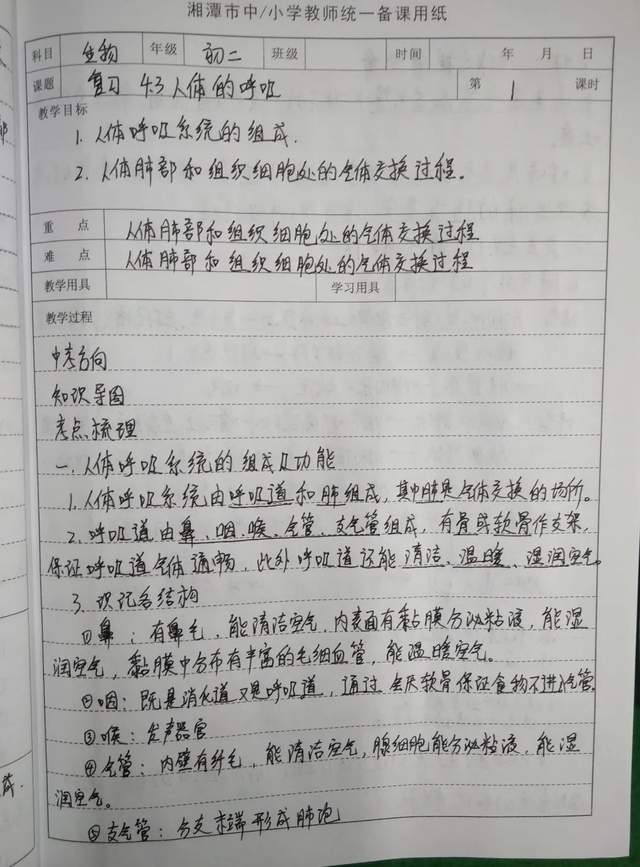 湘潭市中/小学教师统一备课用纸
科目 生物 年级 初二 班级 时间 年 月 日
课题 复习 4.3 人体的呼吸 第 1 课时
教学目标
1. 人体呼吸系统的组成.
2. 人体肺部和组织细胞处的气体交换过程。
重 点 人体肺部和组织细胞处的气体交换过程
难 点 人体肺部和组织细胞处的气体交换过程
教学用具 学习用具
教学过程
中考方向
知识导图
考点梳理
一. 人体呼吸系统的组成及功能
1. 人体呼吸系统由呼吸道和肺组成, 其中肺是气体交换的场所。
2. 呼吸道由鼻、咽、喉、气管、支气管组成, 有骨或软骨作支架,
保证呼吸道气体通畅, 此外呼吸道还能清洁、温暖、湿润空气。
3. 识记各结构
①鼻: 有鼻毛, 能清洁空气, 内表面有黏膜分泌粘液, 能湿
润空气, 黏膜中分布有丰富的毛细血管, 能温暖空气。
②咽: 既是消化道又是呼吸道, 通过会厌软骨保证食物不进气管.
③喉: 发声器官
④气管: 内壁有纤毛, 能清洁空气, 腺细胞能分泌粘液, 能湿
润空气。
⑤支气管: 分支末端形成肺泡